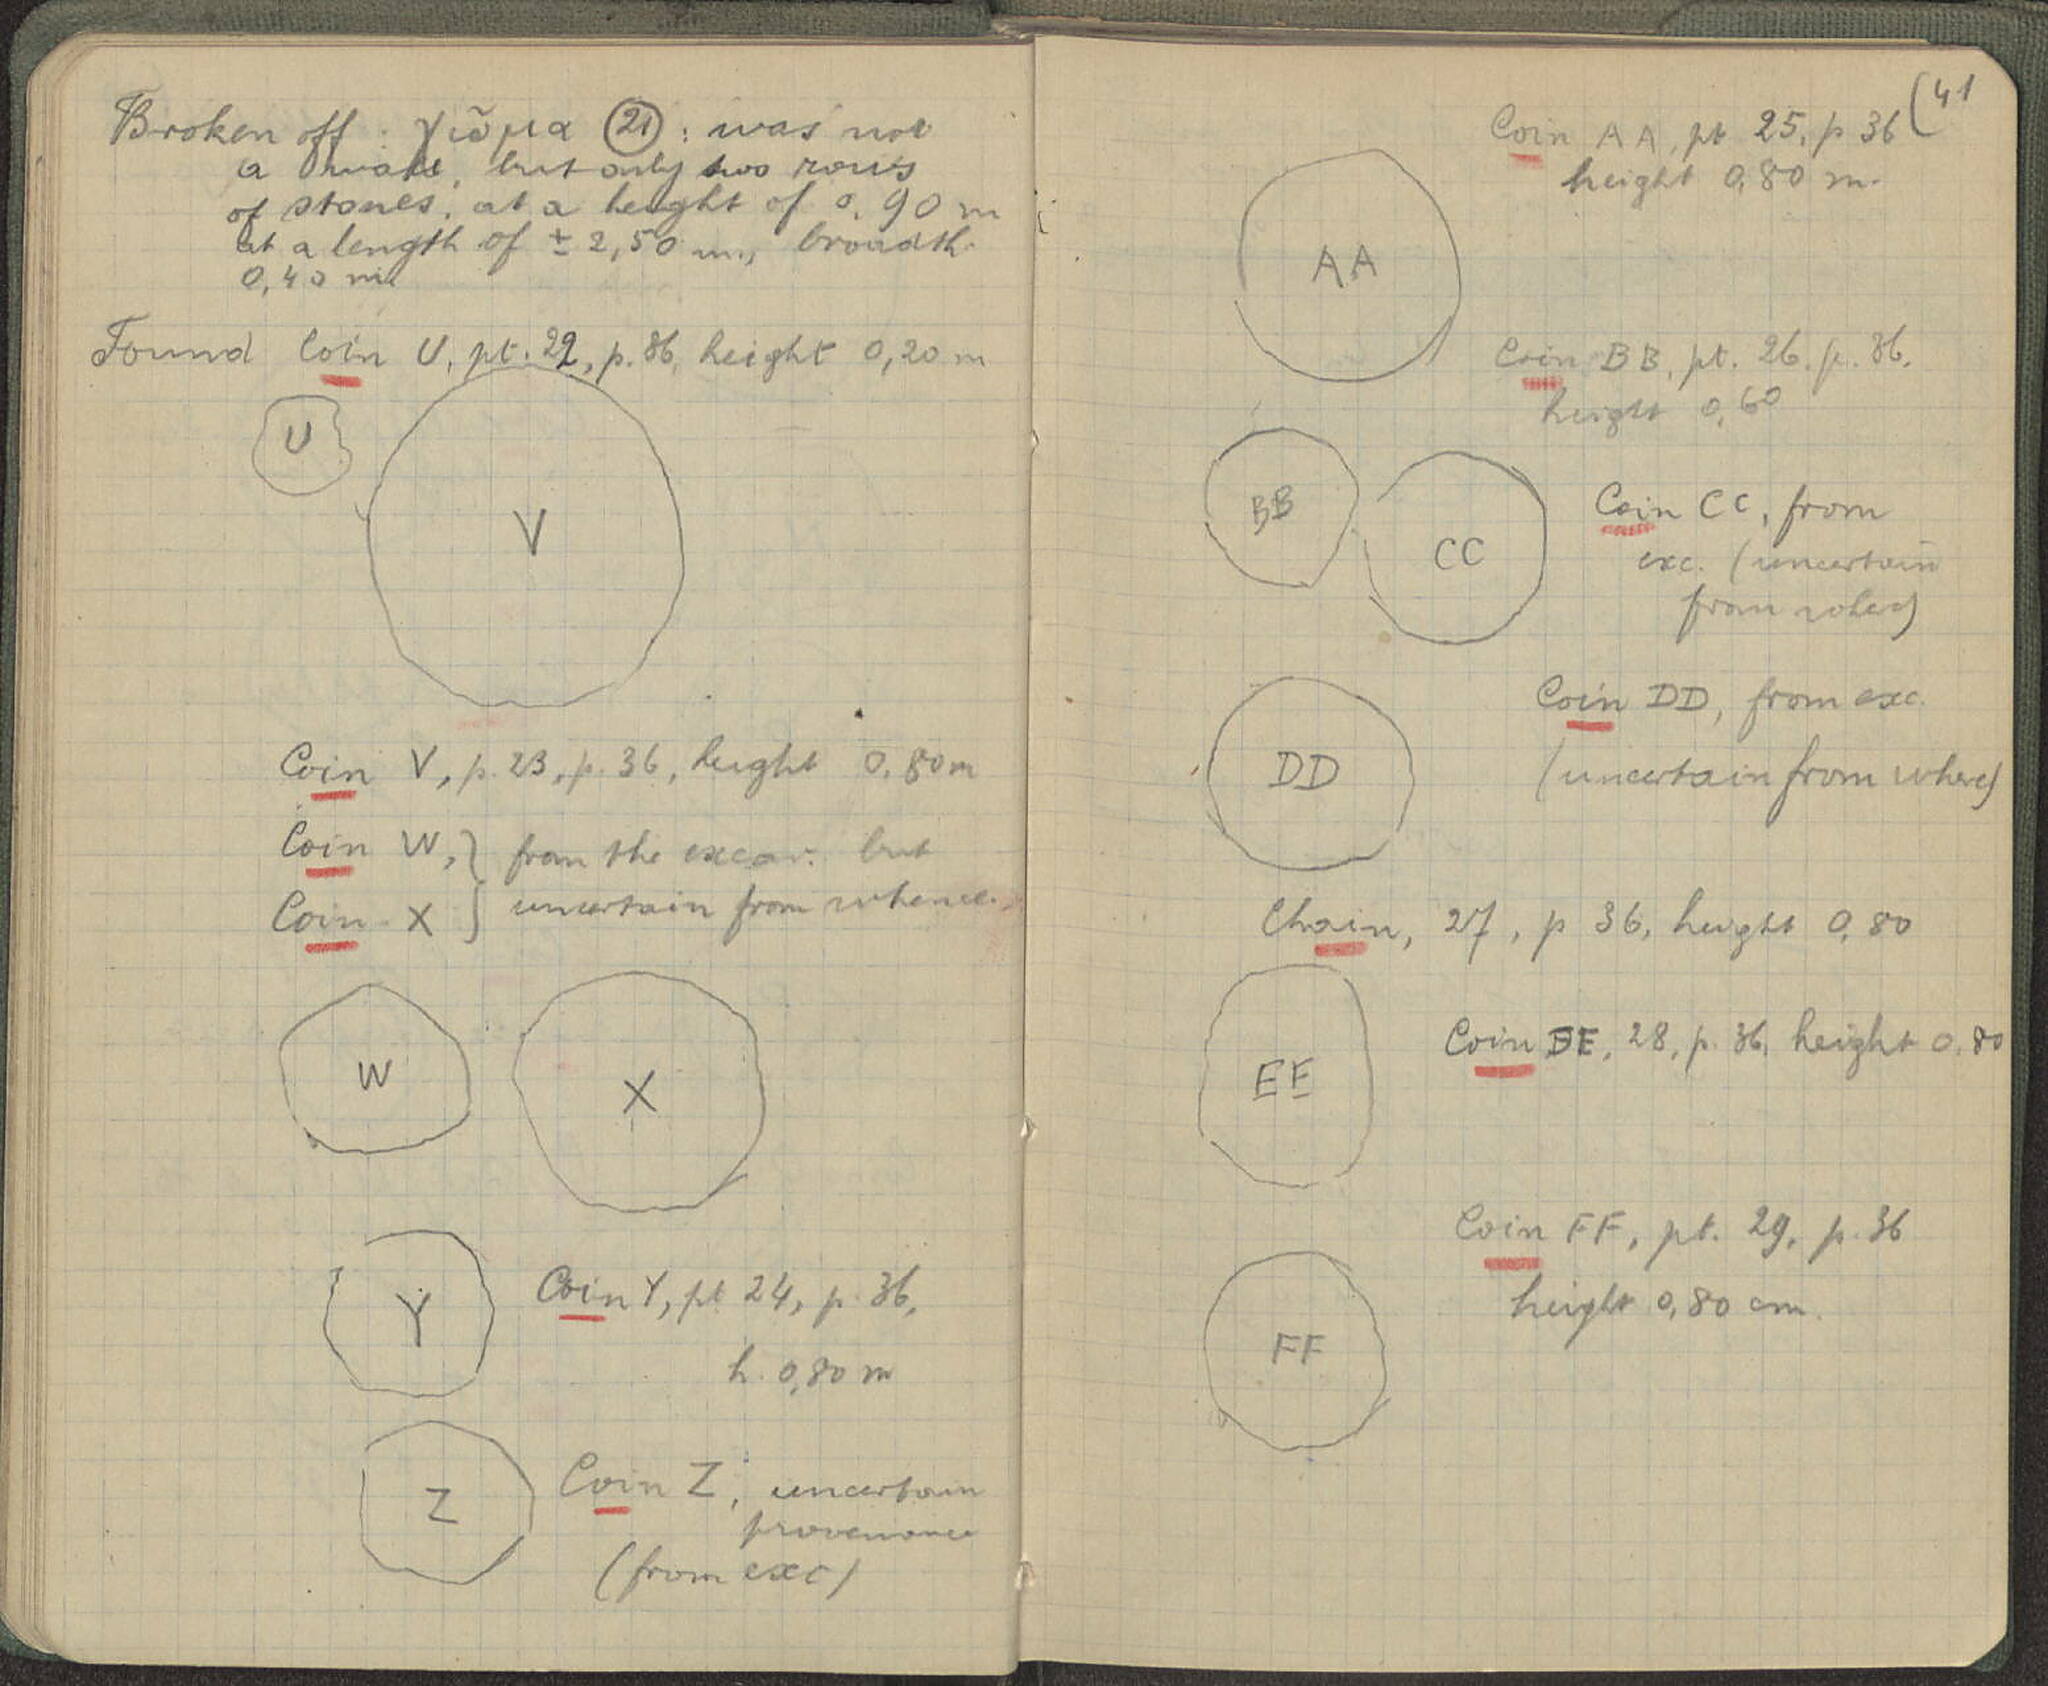 Broken off : γιῶμα (21) : was not
a wall, but only two rows
of stones, at a height of 0.90 m
at a length of ± 2,50 m., broadth
0,40 m
Found Coin U, pt. 22, p. 36, height 0,20 m
U
V
Coin V, p. 23, p. 36, height 0.80 m
Coin W, } from the excav. but
Coin X } uncertain from whence.
W
X
Y
Coin Y, pt 24, p. 36,
h. 0,80 m
Z
Coin Z, uncertain
provenance
(from exc)
41
Coin AA, pt 25, p 36
height 0,80 m.
AA
Coin BB, pt. 26. p. 36.
height 0,60
BB
CC
Coin CC, from
exc. (uncertain
from where)
DD
Coin DD, from exc.
(uncertain from where)
Chain, 27, p 36, height 0,80
EE
Coin EE, 28, p. 36, height 0.80
Coin FF, pt. 29, p. 36
height 0,80 cm.
FF